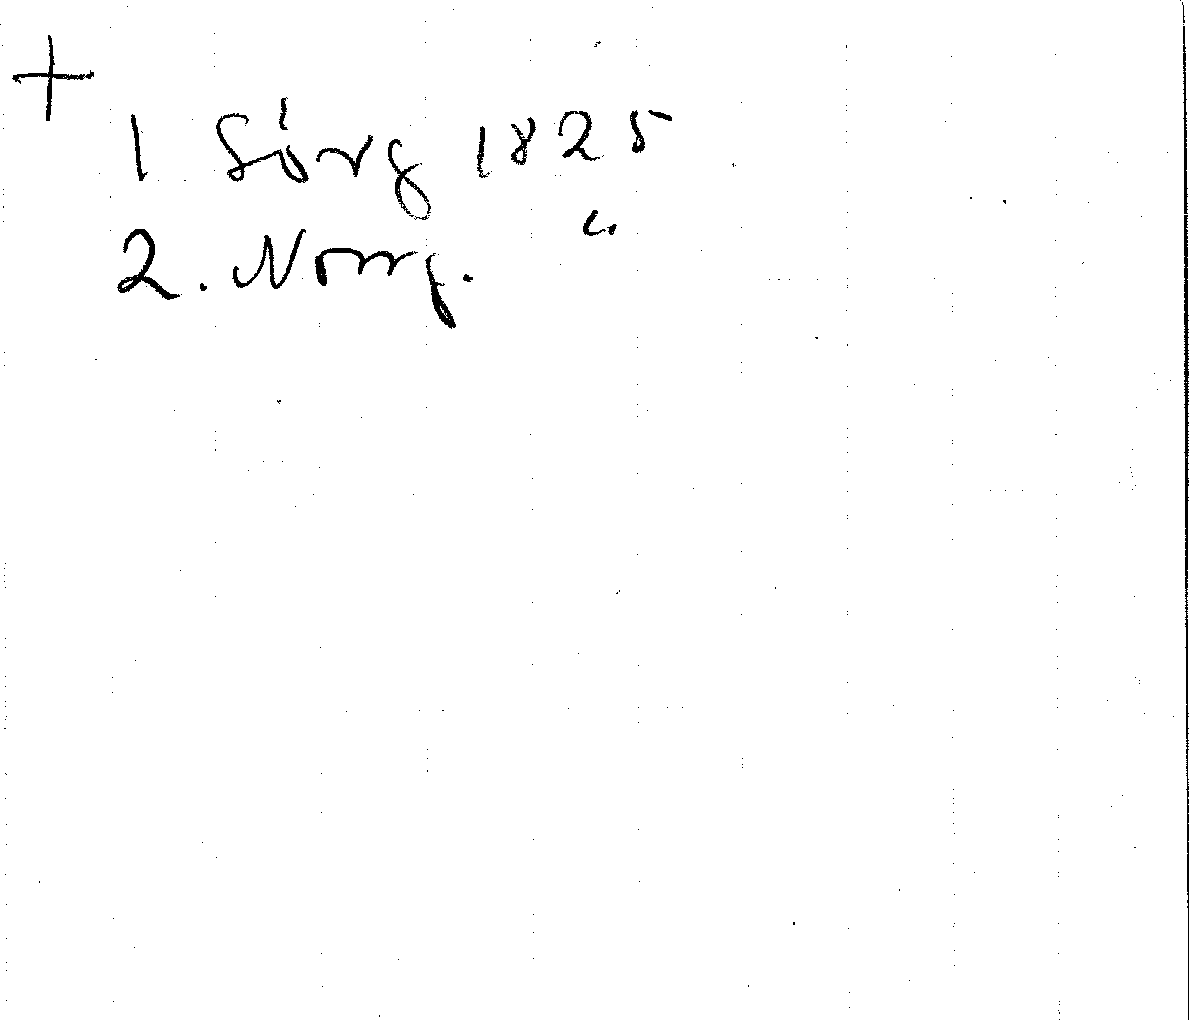 +
1 Sörg 1825
2. Norrg. "